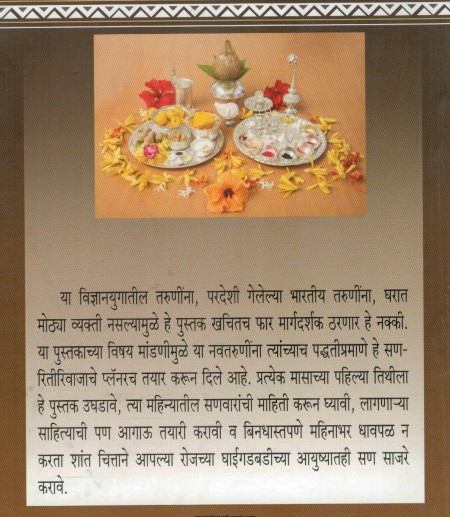 या विज्ञानयुगातील तरुणींना, परदेशी गेलेल्या भारतीय तरुणींना, घरात
मोठ्या व्यक्ती नसल्यामुळे हे पुस्तक खचितच फार मार्गदर्शक ठरणार हे नक्की.
या पुस्तकाच्या विषय मांडणीमुळे या नवतरुणींना त्यांच्याच पद्धतीप्रमाणे हे सण-
रितीरिवाजाचे प्लॅनरच तयार करून दिले आहे. प्रत्येक मासाच्या पहिल्या तिथीला
हे पुस्तक उघडावे, त्या महिन्यातील सणवारांची माहिती करून घ्यावी, लागणाऱ्या
साहित्याची पण आगाऊ तयारी करावी व बिनधास्तपणे महिनाभर धावपळ न
करता शांत चित्ताने आपल्या रोजच्या घाईगडबडीच्या आयुष्यातही सण साजरे
करावे.